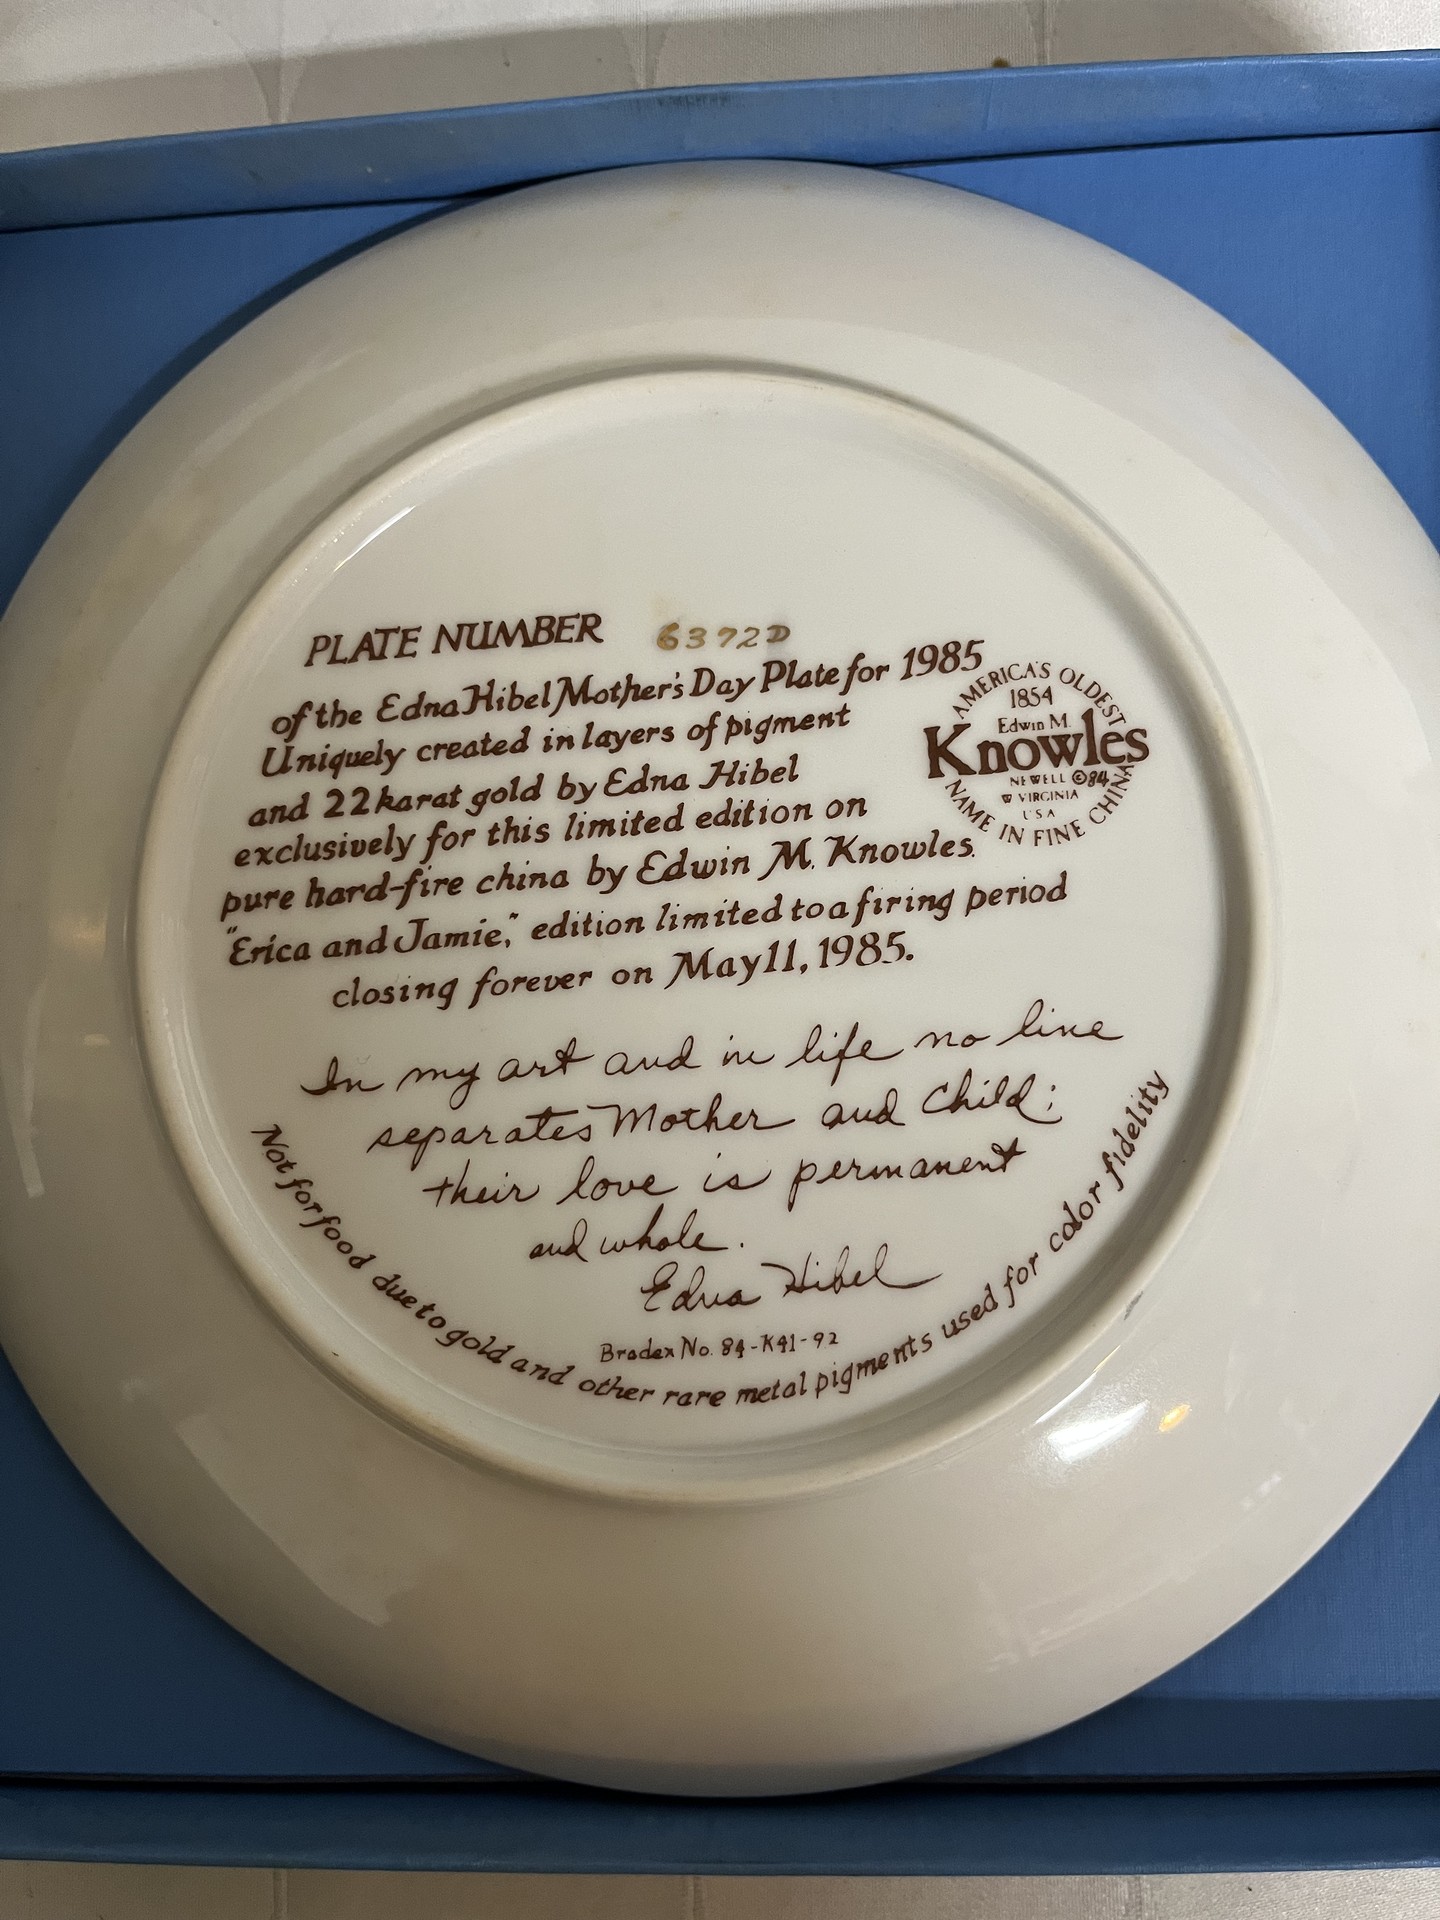 PLATE NUMBER 6392D
of the Edna Hibel Mother's Day Plate for 1985
Uniquely created in layers of pigment
and 22 karat gold by Edna Hibel
exclusively for this limited edition on
pure hard-fire china by Edwin M. Knowles.
"Erica and Jamie," edition limited to a firing period
closing forever on May 11, 1985.
AMERICA'S OLDEST
1854
Edwin M.
Knowles
NEWELL ©84
W VIRGINIA
USA
NAME IN FINE CHINA
In my art and in life no line
separates Mother and Child;
their love is permanent
and whole.
Edna Hibel
Bradex No. 84-K41-92
Not for food due to gold and other rare metal pigments used for color fidelity